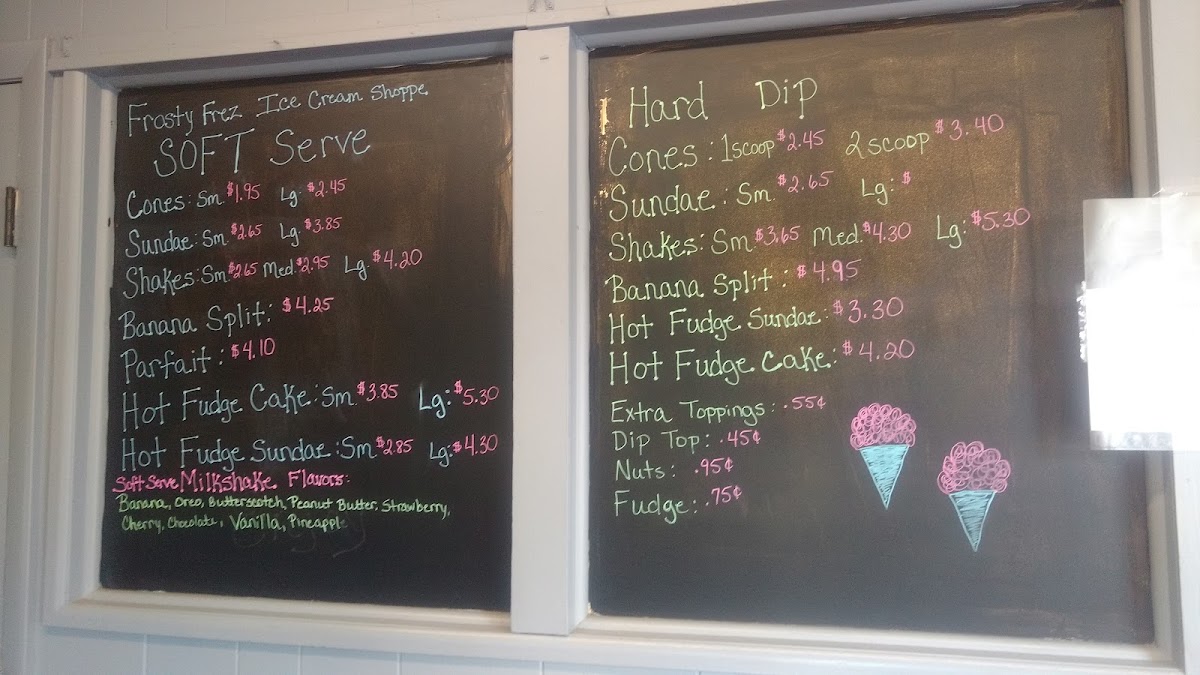 Frosty Frez Ice Cream Shoppe
SOFT Serve
Cones: Sm. $1.95 Lg: $2.45
Sundae: Sm. $2.65 Lg: $3.85
Shakes: Sm. $2.65 Med. $2.95 Lg. $4.20
Banana Split: $4.25
Parfait: $4.10
Hot Fudge Cake: Sm. $3.85 Lg: $5.30
Hot Fudge Sundae: Sm. $2.85 Lg: $4.30
Soft Serve Milkshake Flavors:
Banana, Oreo, Butterscotch, Peanut Butter, Strawberry,
Cherry, Chocolate, Vanilla, Pineapple
Hard Dip
Cones: 1 scoop $2.45 2 scoop $3.40
Sundae: Sm. $2.65 Lg: $
Shakes: Sm. $3.65 Med. $4.30 Lg: $5.30
Banana Split: $4.95
Hot Fudge Sundae: $3.30
Hot Fudge Cake: $4.20
Extra Toppings: .55¢
Dip Top: .45¢
Nuts: .95¢
Fudge: .75¢